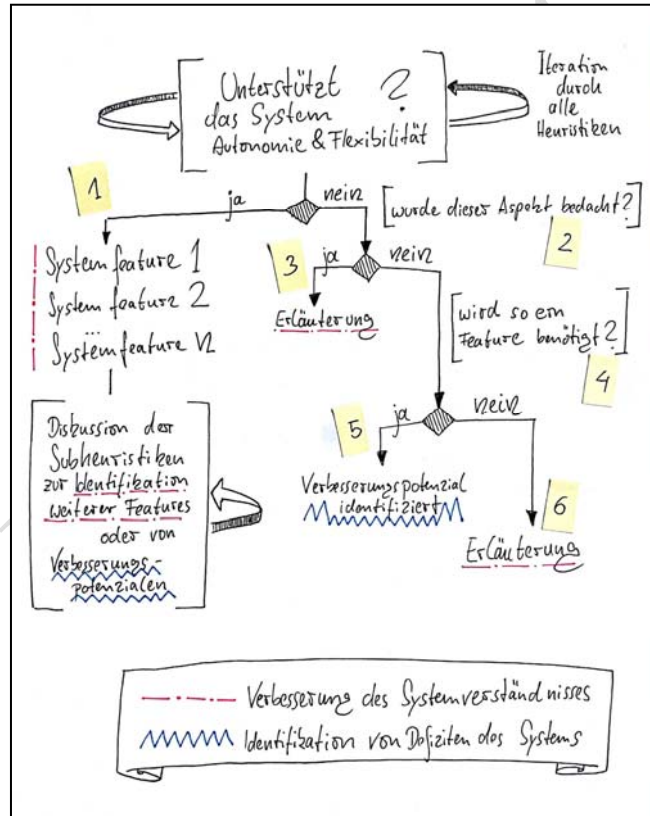 Unterstützt
das System ?
Autonomie & Flexibilität
Iteration
durch
alle
Heuristiken
1
ja
nein
[wurde dieser Aspekt bedacht?]
2
Systemfeature 1
System feature 2
...
Systemfeature n
3
ja
nein
Erläuterung
[wird so ein
Feature benötigt?]
4
Diskussion der
Subheuristiken
zur Identifikation
weiterer Features
oder von
Verbesserungs-
potenzialen
5
ja
nein
Verbesserungspotenzial
identifiziert
6
Erläuterung
Verbesserung des Systemverständnisses
Identifikation von Defiziten des Systems